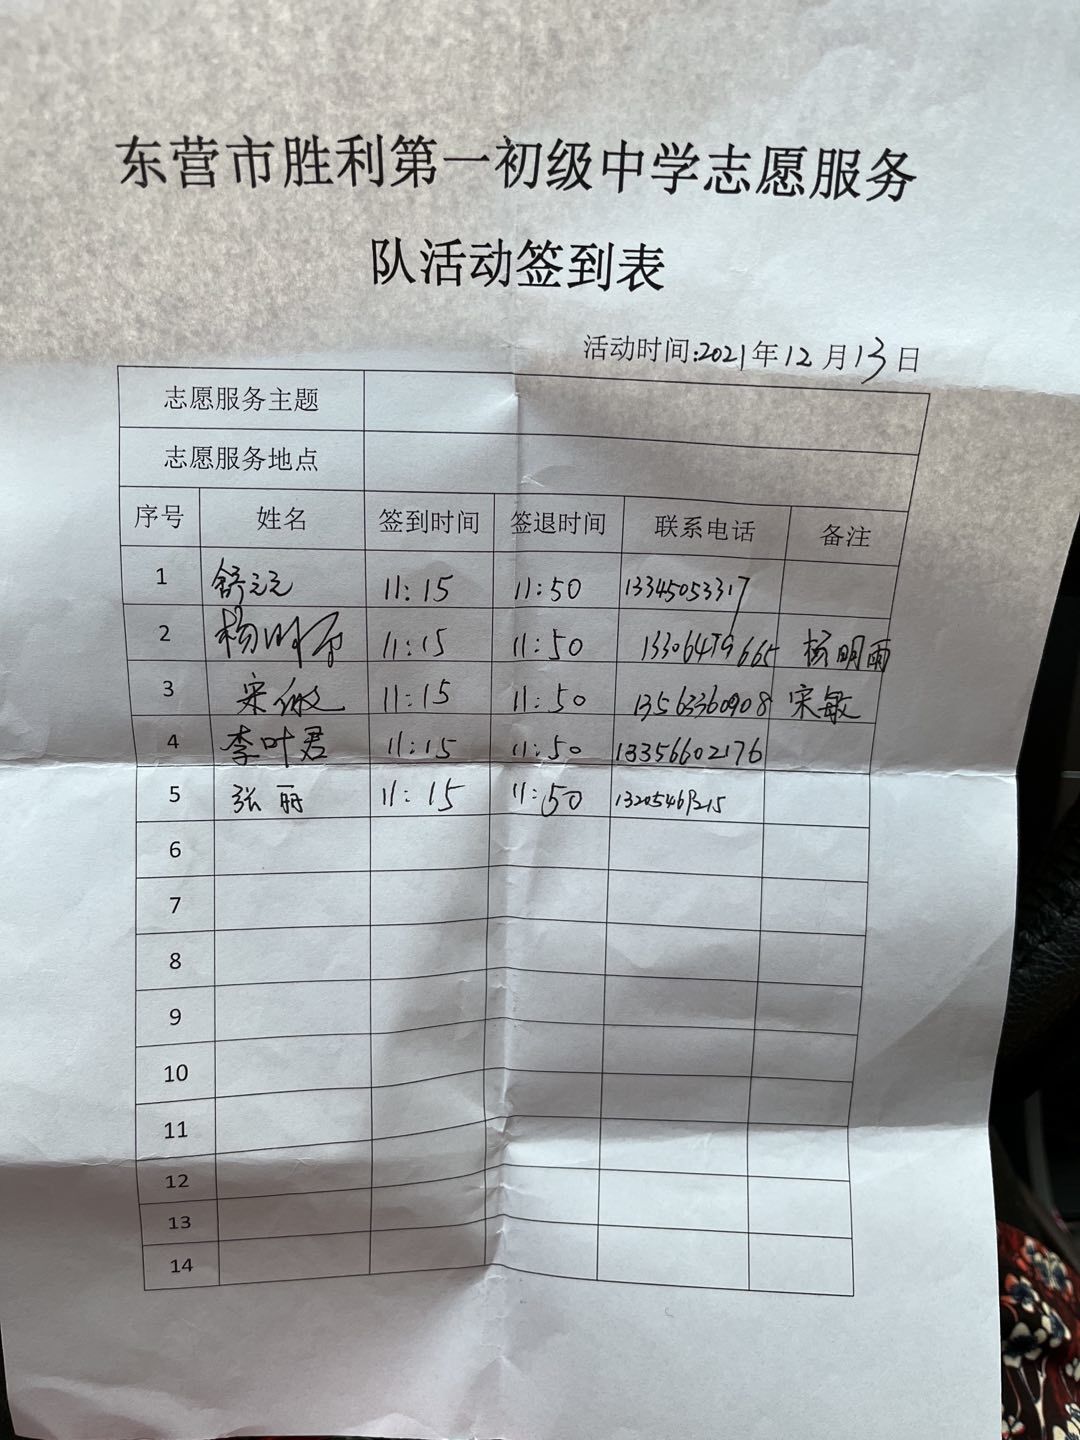 东营市胜利第一初级中学志愿服务
队活动签到表
活动时间:2021年12月13日
志愿服务主题
志愿服务地点
序号 姓名 签到时间 签退时间 联系电话 备注
1 舒元元 11:15 11:50 13345053317
2 杨明雨 11:15 11:50 13306479665 杨明雨
3 宋敏 11:15 11:50 13563360908 宋敏
4 李叶君 11:15 11:50 13356602176
5 张丽 11:15 11:50
6
7
8
9
10
11
12
13
14